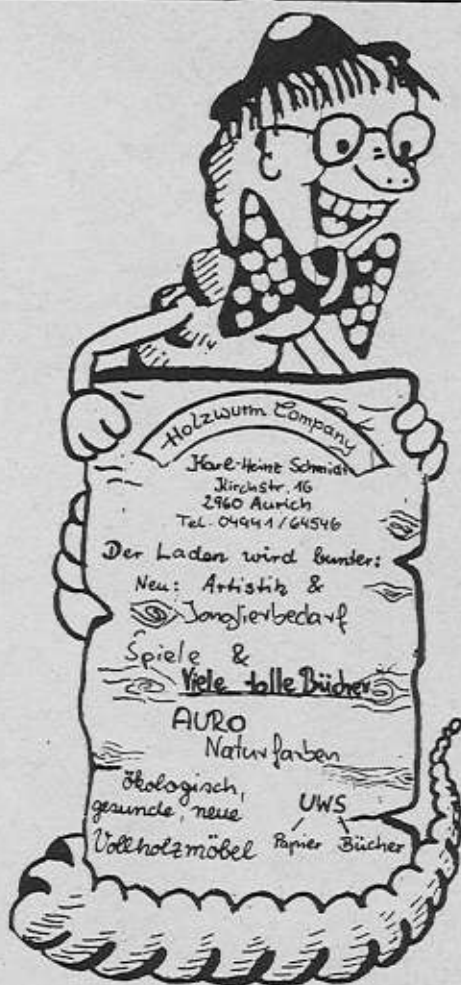 Holzwurm Company
Karl-Heinz Schmidt
Kirchstr. 16
2960 Aurich
Tel. 04941/64546
Der Laden wird bunter:
Neu: Artistik &
Jonglierbedarf
Spiele &
Viele tolle Bücher
AURO
Naturfarben
ökologisch,
gesunde, neue
Vollholzmöbel
UWS
Papier Bücher